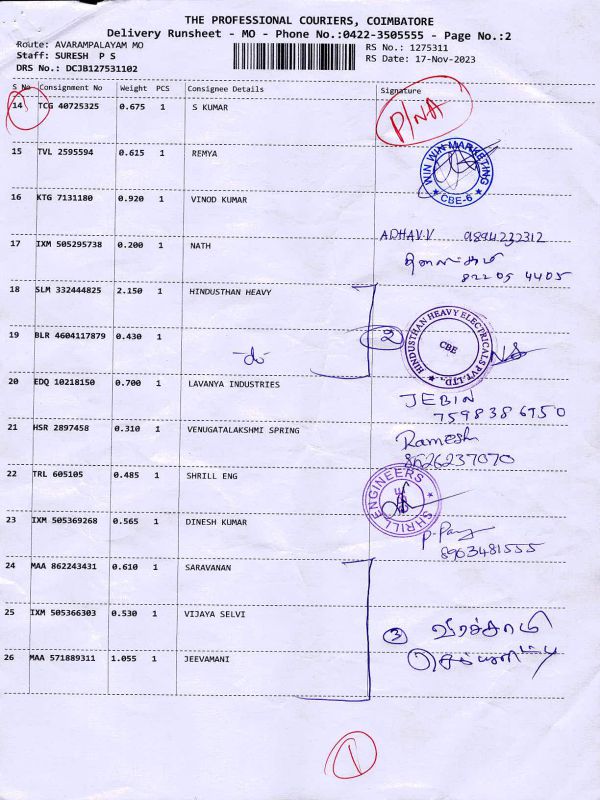 THE PROFESSIONAL COURIERS, COIMBATORE
Delivery Runsheet - MO - Phone No.:0422-3505555 - Page No.:2
Route: AVARAMPALAYAM MO
RS No.: 1275311
Staff: SURESH P S
RS Date: 17-Nov-2023
DRS No.: DCJB127531102
S No Consignment No Weight PCS Consignee Details Signature
14 TCG 40725325 0.675 1 S KUMAR P/NA
15 TVL 2595594 0.615 1 REMYA
WIN WIN MARKETING
★ CBE-6 ★
16 KTG 7131180 0.920 1 VINOD KUMAR
ADHAV.V 9894232312
17 IXM 505295738 0.200 1 NATH
82205 4405
18 SLM 332444825 2.150 1 HINDUSTHAN HEAVY
HINDUSTHAN HEAVY ELECTRICALS PVT. LTD., ★
CBE
19 BLR 4604117879 0.430 1
2
-do-
20 EDQ 10218150 0.700 1 LAVANYA INDUSTRIES
JEBIN
7598386950
21 HSR 2897458 0.310 1 VENUGATALAKSHMI SPRING
Ramesh
8626237070
22 TRL 605105 0.485 1 SHRILL ENG
SHRILL ENGINEERS ★
23 IXM 505369268 0.565 1 DINESH KUMAR
8963481555
24 MAA 862243431 0.610 1 SARAVANAN
25 IXM 505366303 0.530 1 VIJAYA SELVI
3
26 MAA 571889311 1.055 1 JEEVAMANI
1